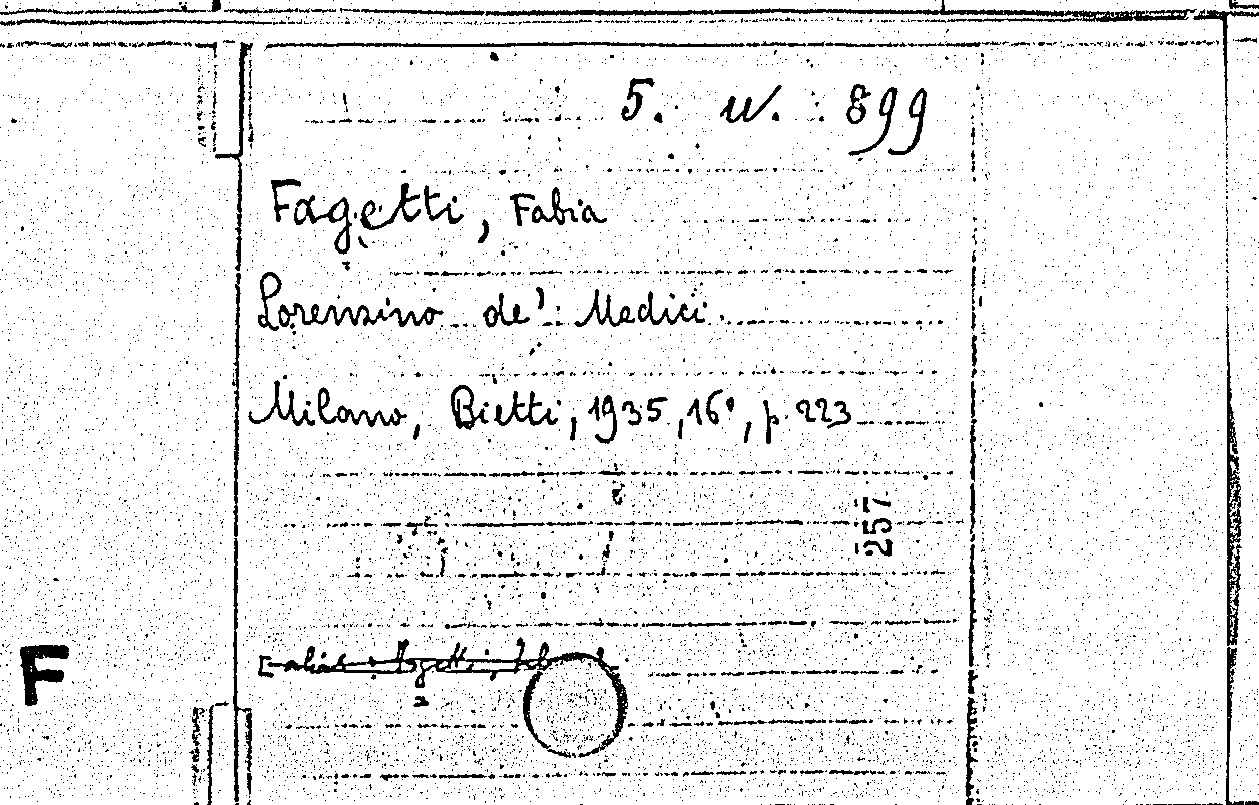 5. w. 899
Fagetti, Fabia
Lorenzino de' Medici.
Milano, Bietti, 1935, 16°, p. 223
257
F